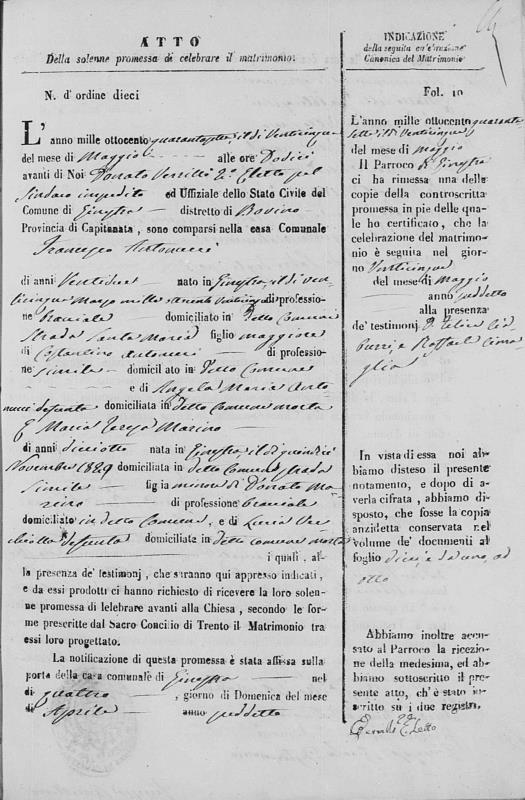 ATTO
Della solenne promessa di celebrare il matrimonio:
N. d' ordine dieci
L' anno mille ottocento quarantasette, il dì Venticinque
del mese di Maggio alle ore Dodici
avanti di Noi Donato Verrilli 2º Eletto pel
Sindaco impedito ed Uffiziale dello Stato Civile del
Comune di Ginestra distretto di Bovino
Provincia di Capitanata, sono comparsi nella casa Comunale
Francesco Antonucci
di anni Ventidue nato in Ginestra, il dì ven-
ticinque Marzo mille ottocento venticinque di professio-
ne bracciale domiciliato in Detto Comune
Strada Santa Maria figlio maggiore
di Costantino Antonucci di professio-
ne simile domiciliato in Detto Comune
e di Angela Maria Anto
nucci defunta domiciliata in Detto Comune morta
E Maria Teresa Marino
di anni diciotto nata in Ginestra, il dì quindici
Novembre 1829 domiciliata in detto Comune, strada
Simile figlia minore di Donato Ma-
rino di professione bracciale
domiciliato in Detto Comune, e di Lucia
defunta domiciliata in detto comune morta
i quali, al-
la presenza de' testimonj, che saranno qui appresso indicati,
e da essi prodotti ci hanno richiesto di ricevere la loro solen-
ne promessa di lelebrare avanti alla Chiesa, secondo le for-
me prescritte dal Sacro Concilio di Trento il Matrimonio tra
essi loro progettato.
La notificazione di questa promessa è stata affissa sulla
porta della casa comunale di Ginestra nel
dì quattro, giorno di Domenica del mese
di Aprile anno suddetto
INDICAZIONE
della seguita celebrazione
Canonica del Matrimonio
Fol. 10
L'anno mille ottocento quaranta
sette il dì Venticinque
del mese di Maggio
Il Parroco di Ginestra
ci ha rimessa una delle
copie della controscritta
promessa in piè delle qua-
le ho certificato, che la
celebrazione del matrimo-
nio è seguita nel gior-
no Venticinque
del mese di Maggio
anno suddetto
alla presenza
de' testimonj D. Felice
e Raffaele Cima
glia
In vista di essa noi ab-
biamo disteso il presente
notamento, e dopo di a-
verla cifrata, abbiamo di-
sposto, che fosse la copia
anzidetta conservata nel
volume de' documenti al
foglio dieci, e
otto
Abbiamo inoltre accu-
sato al Parroco la ricezio-
ne della medesima, ed ab-
biamo sottoscritto il pre-
sente atto, ch'è stato in-
scritto su i due registri.